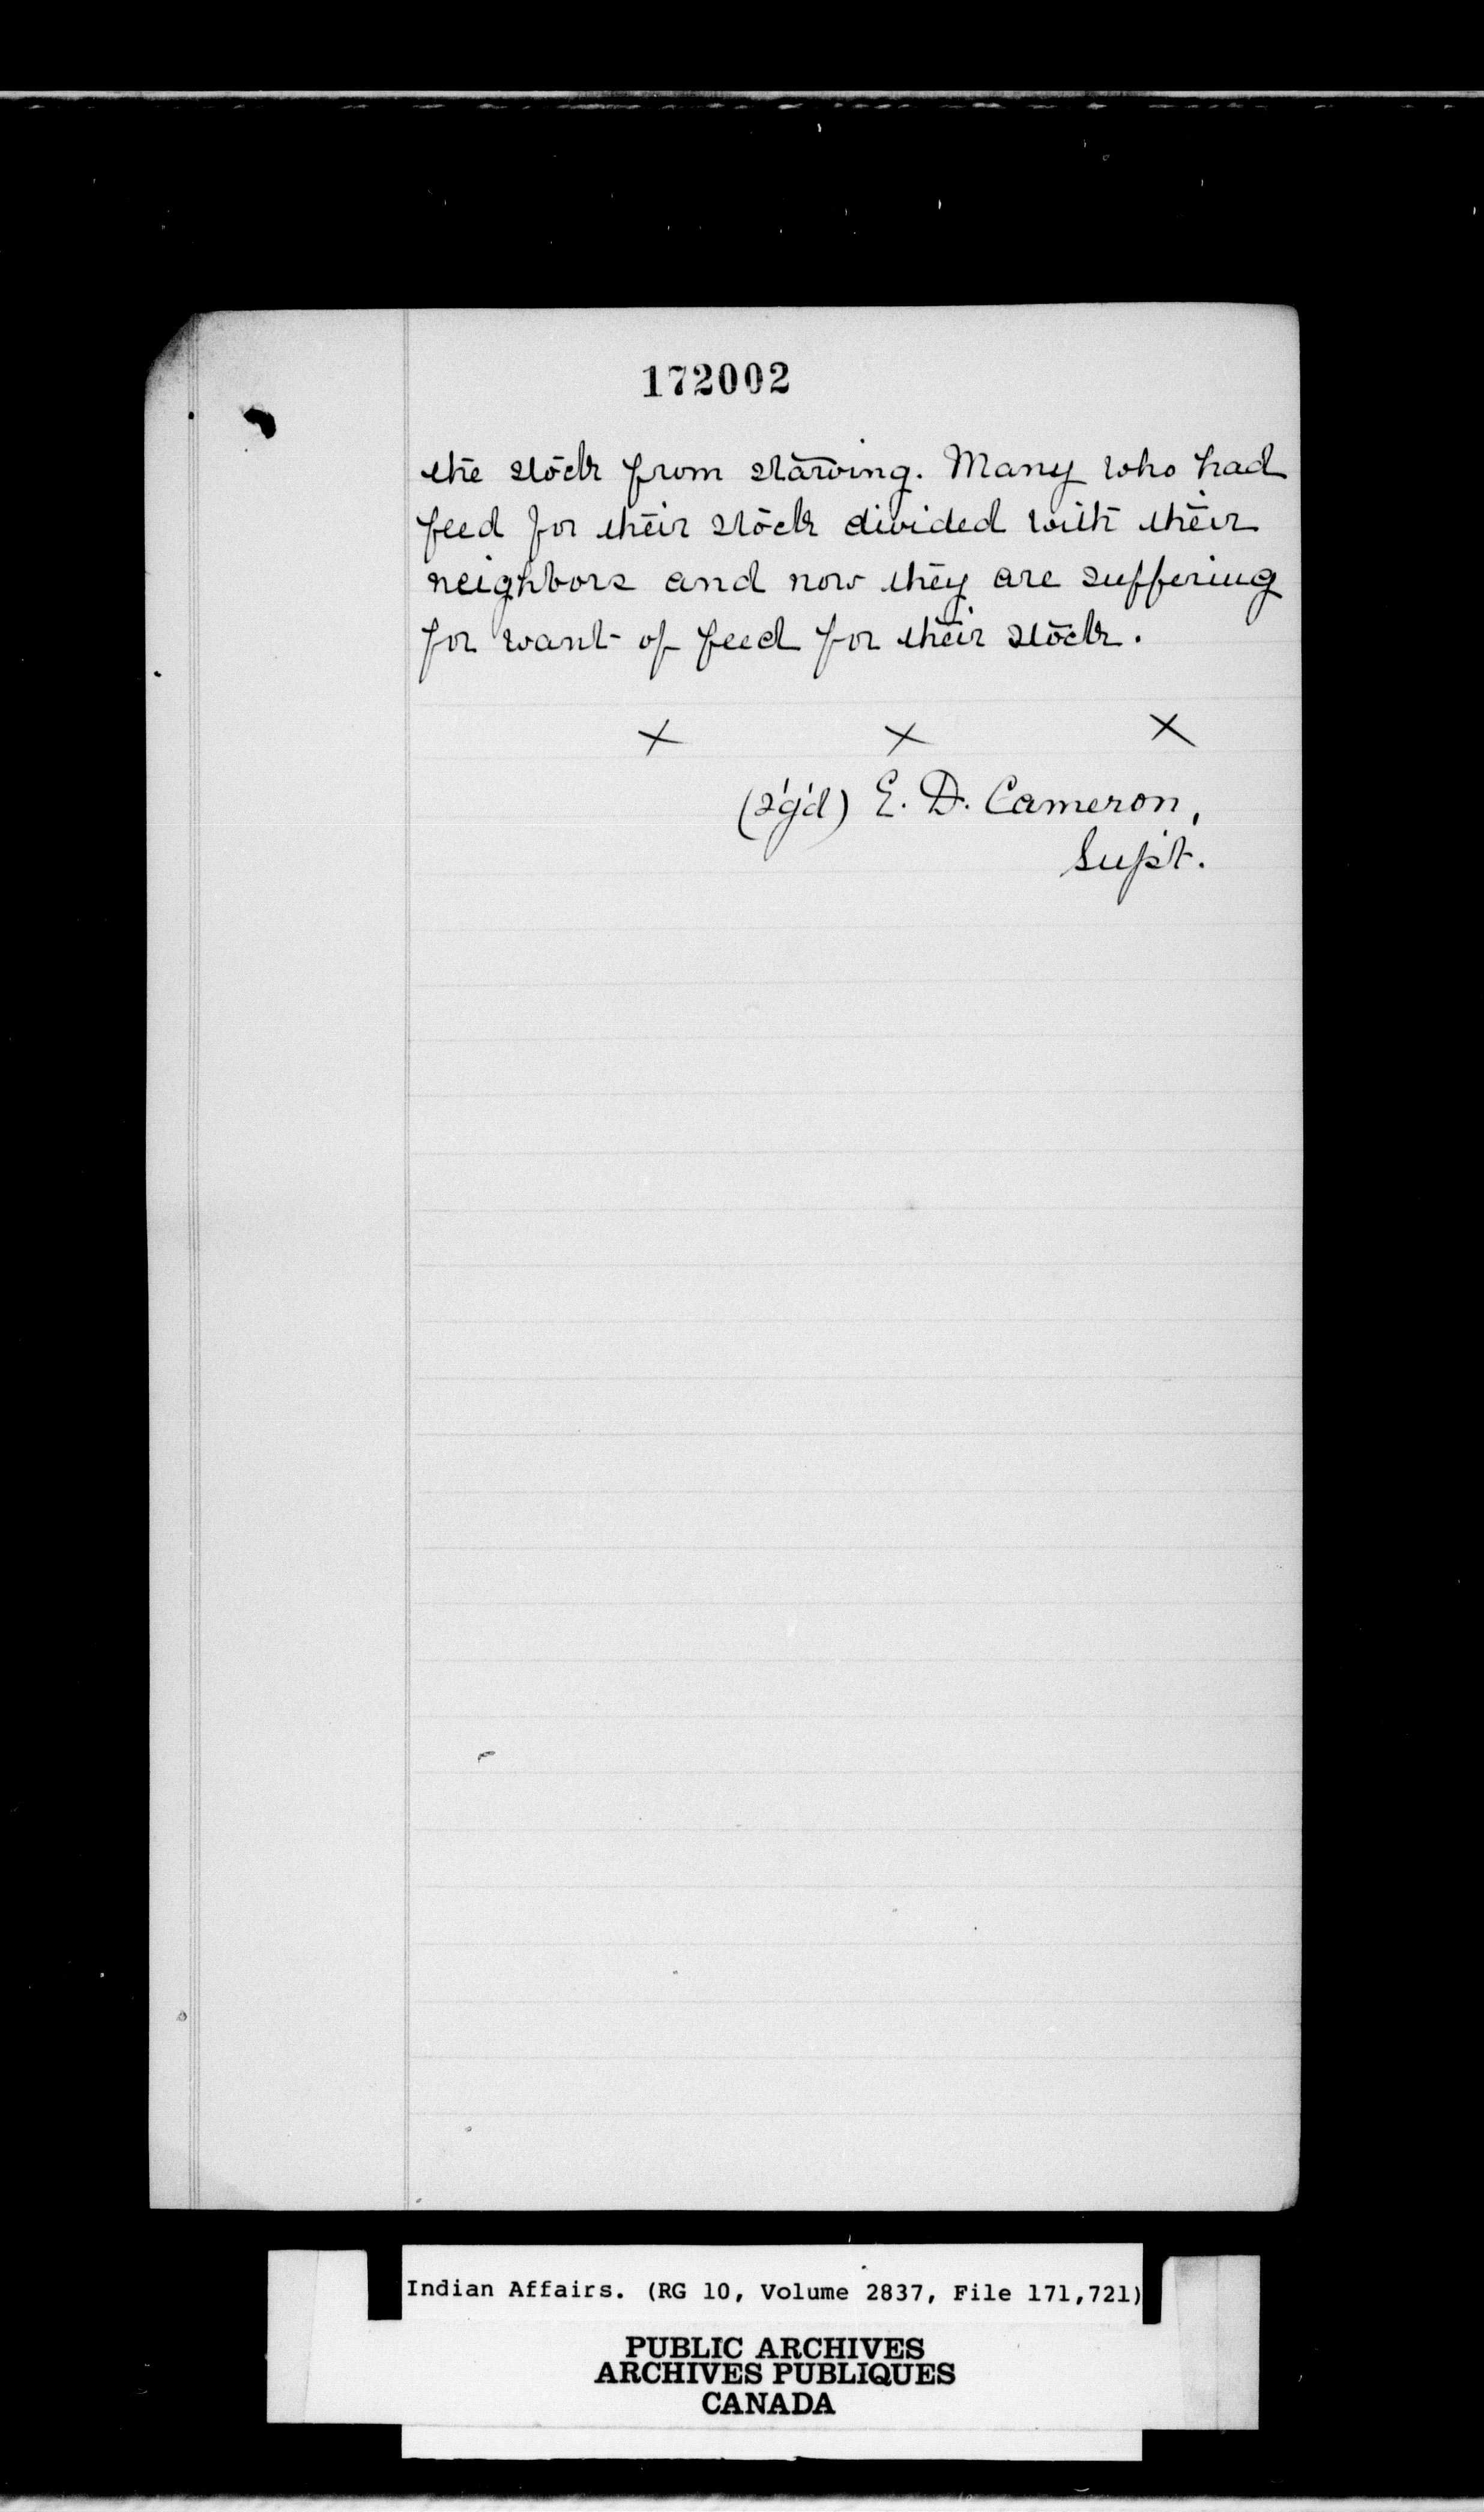 172002
the stock from starving. Many who had
feed for their stock divided with their
neighbors and now they are suffering
for want of feed for their stock.
× × ×
(s'g'd) E. D. Cameron,
Sup't.
Indian Affairs. (RG 10, Volume 2837, File 171,721)
PUBLIC ARCHIVES
ARCHIVES PUBLIQUES
CANADA